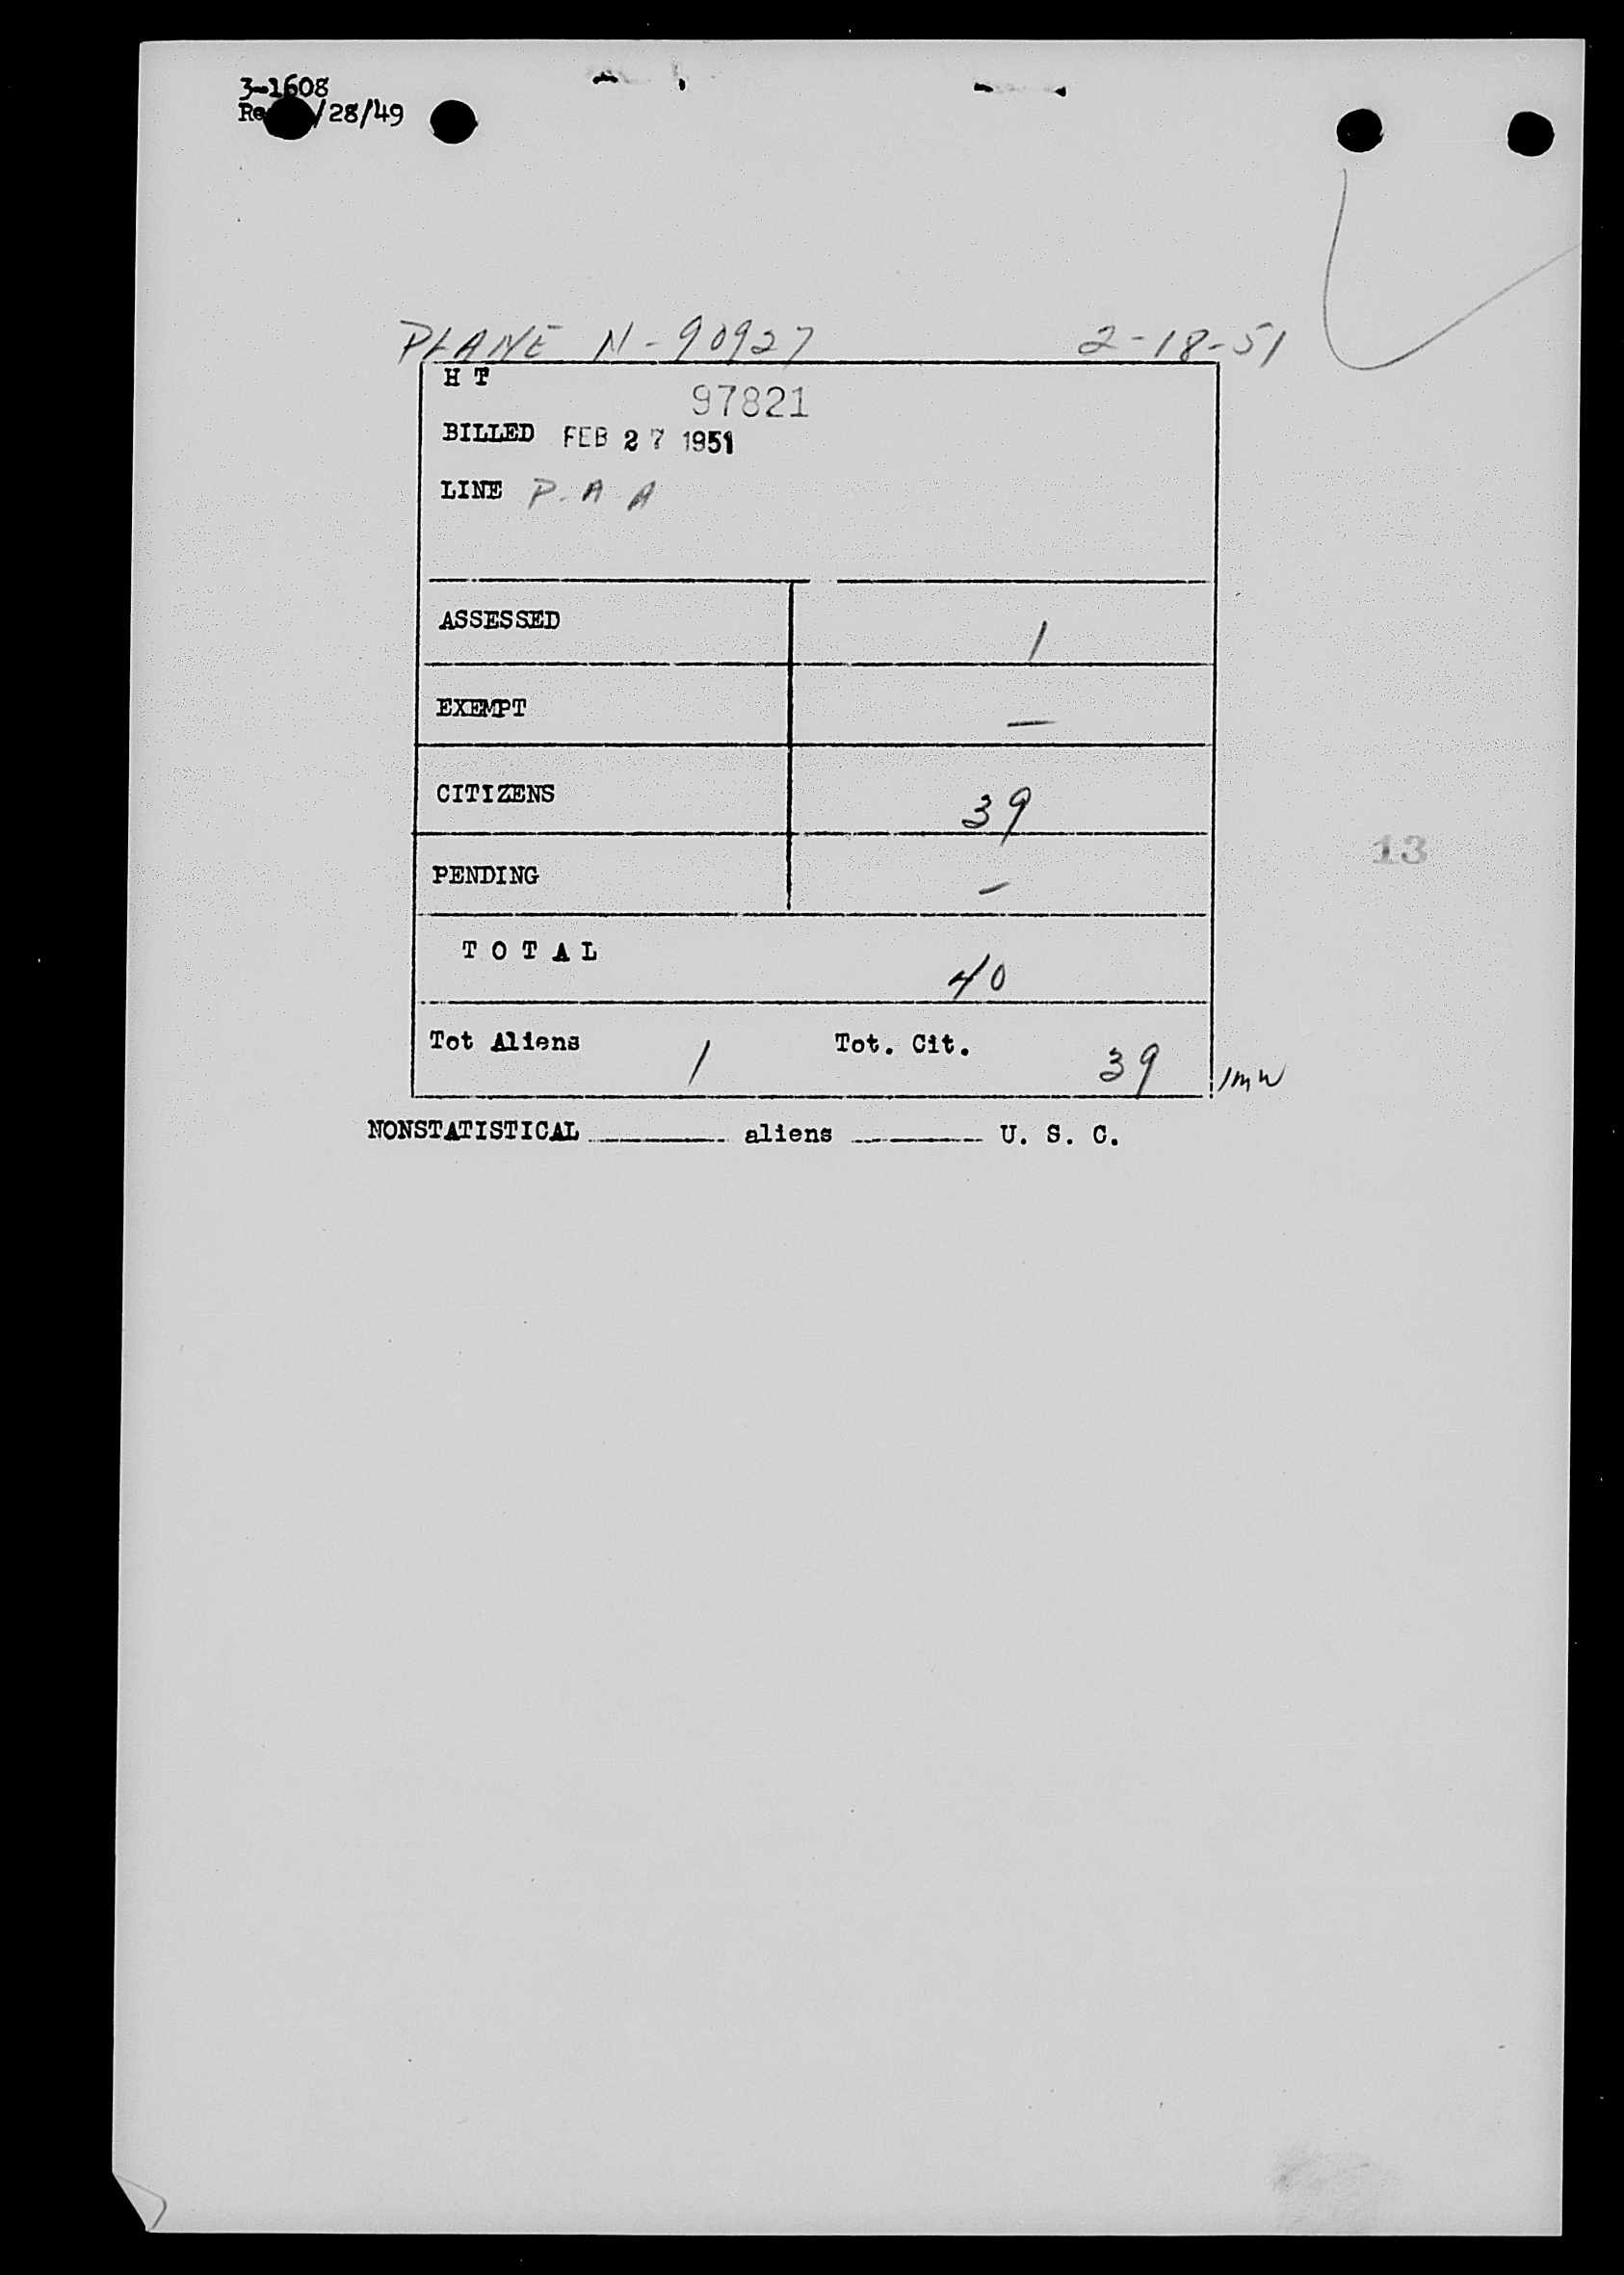 3-1608
/28/49
PLANE N-90927 2-18-51
H T
97821
BILLED FEB 27 1951
LINE P.A A
ASSESSED 1
EXEMPT —
CITIZENS 39
13
PENDING —
T O T A L 40
Tot Aliens 1 Tot. Cit. 39
NONSTATISTICAL ________ aliens ________ U. S. C.